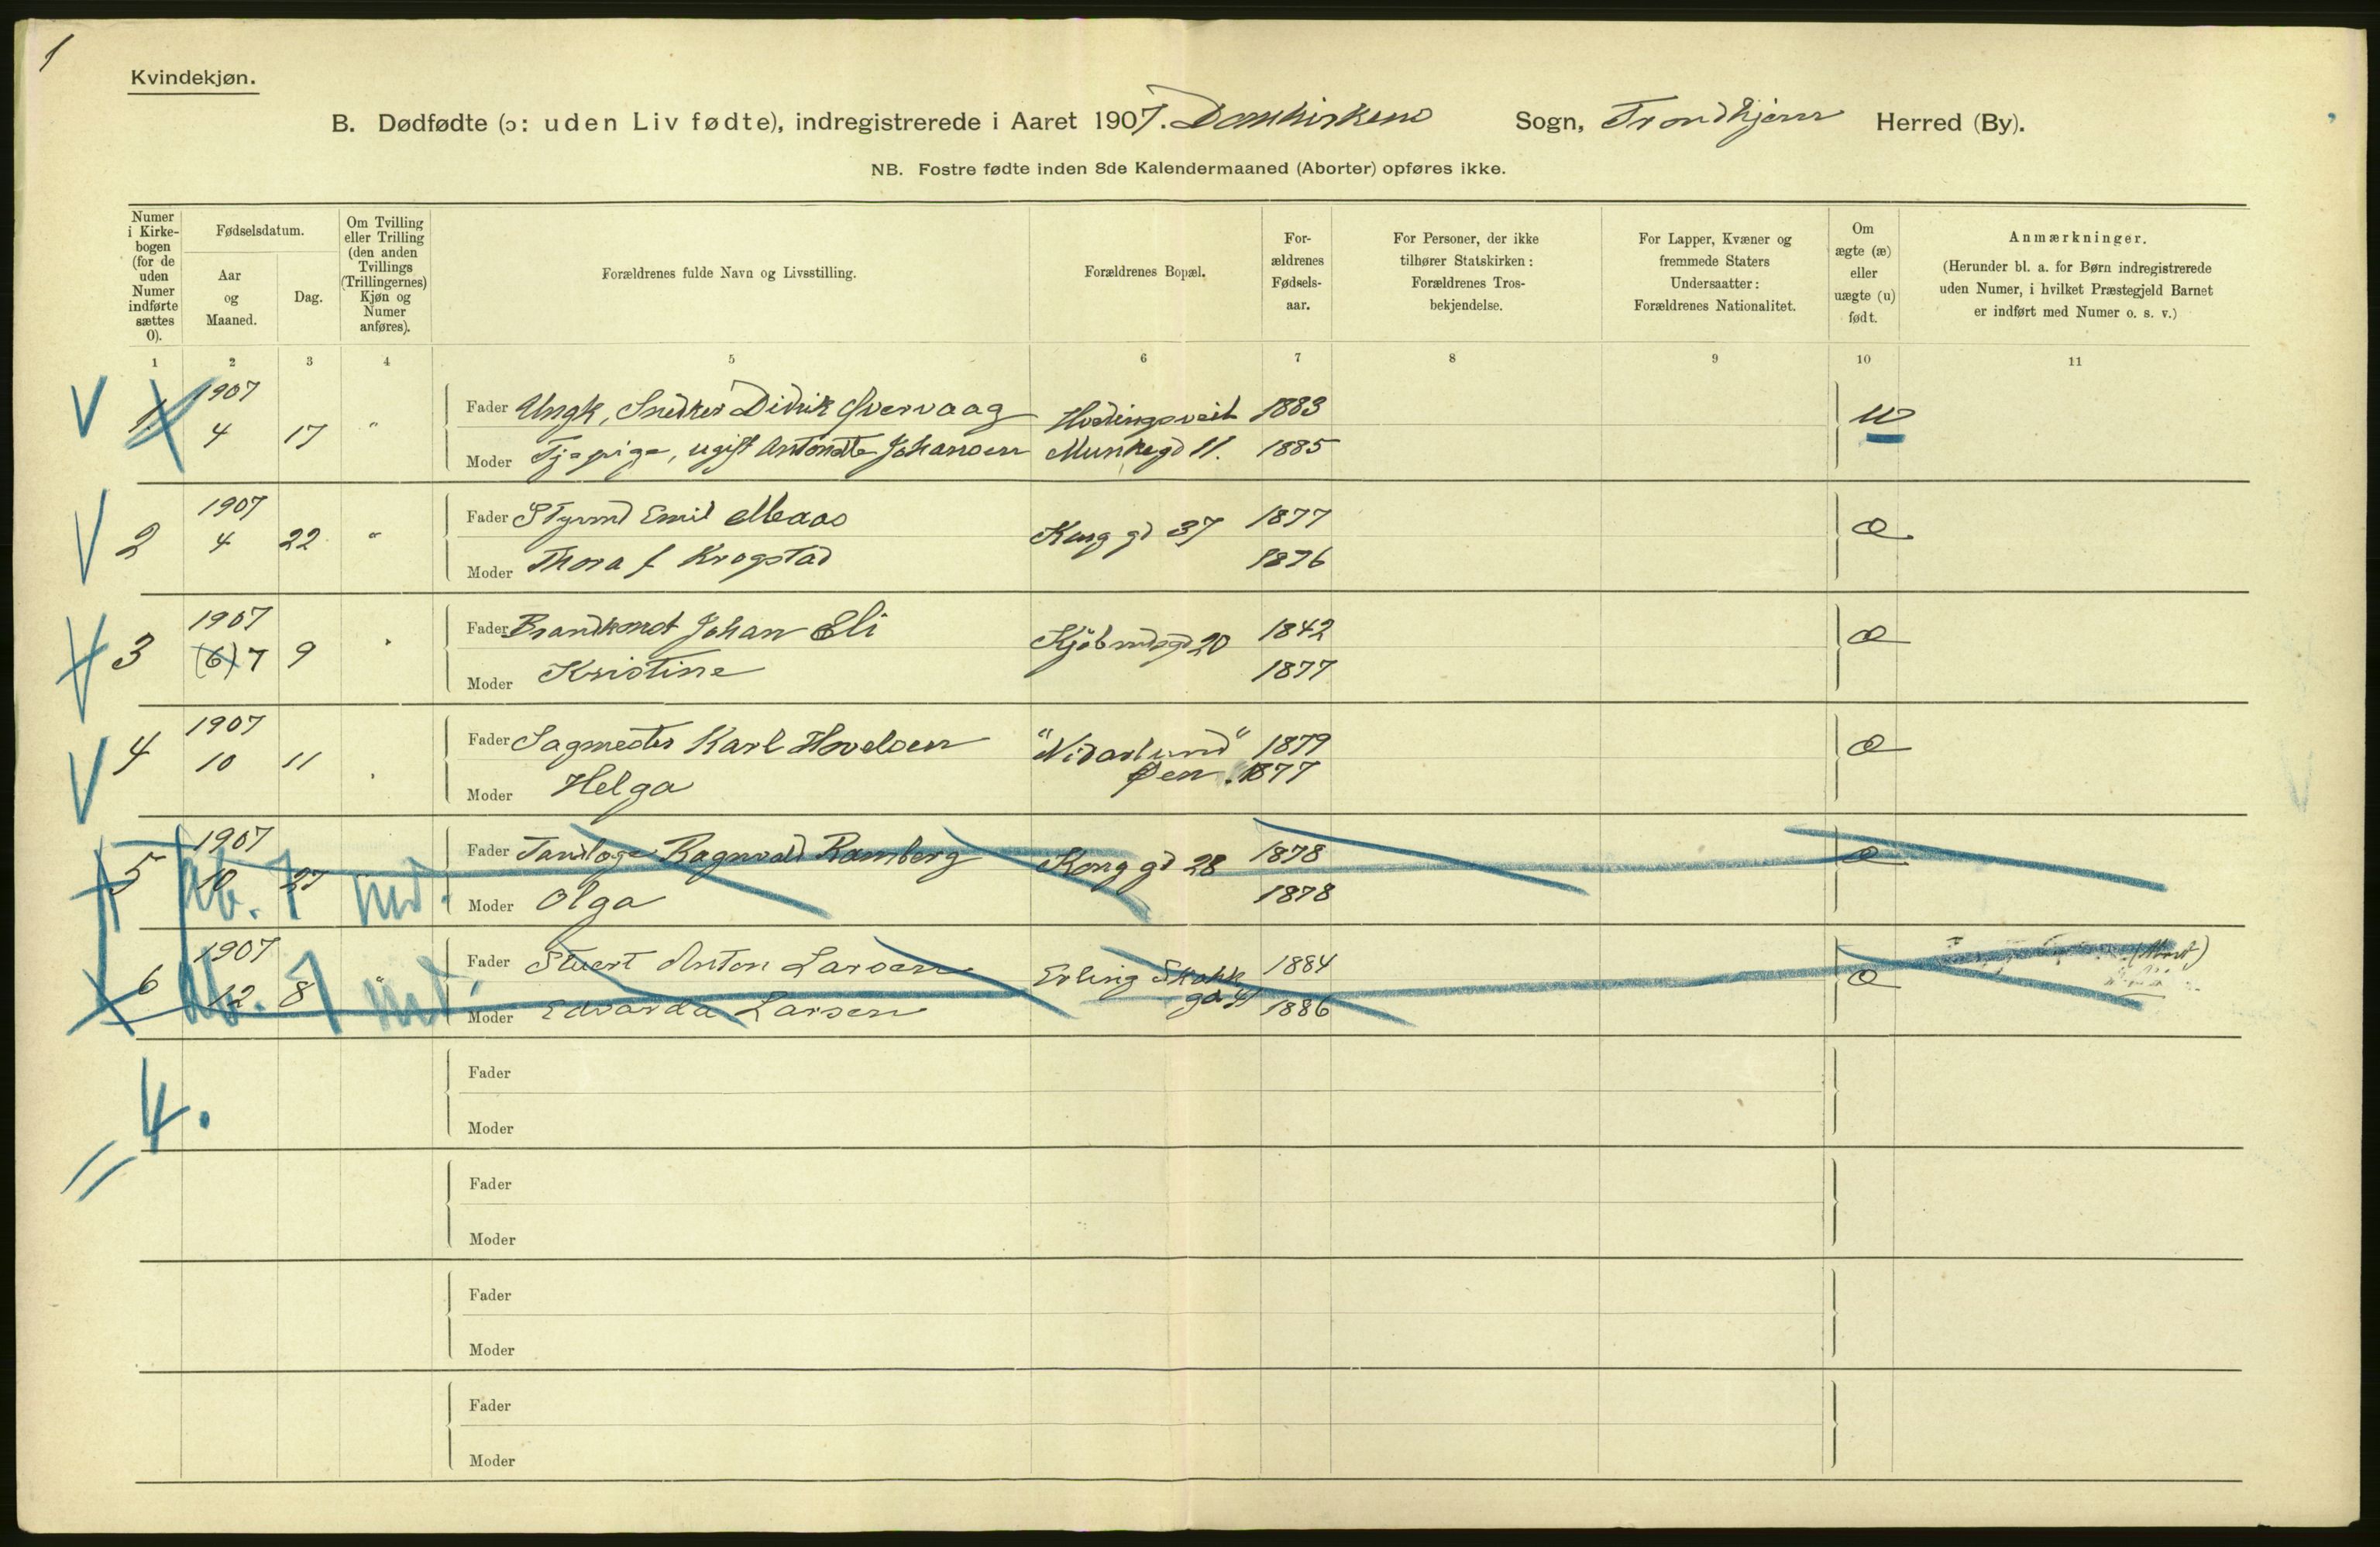 1
Kvindekjøn.
B. Dødfødte (ɔ: uden Liv fødte), indregistrerede i Aaret 1907. Domkirkens Sogn, Trondhjem Herred (By).
NB. Fostre fødte inden 8de Kalendermaaned (Aborter) opføres ikke.
Numer i Kirke-bogen (for de uden Numer indførte sættes 0).
Fødselsdatum.
Aar og Maaned.
Dag.
Om Tvilling eller Trilling (den anden Tvillings (Trillingernes) Kjøn og Numer anføres).
Forældrenes fulde Navn og Livsstilling.
Forældrenes Bopæl.
For-ældrenes Fødsels-aar.
For Personer, der ikke tilhører Statskirken: Forældrenes Tros-bekjendelse.
For Lapper, Kvæner og fremmede Staters Undersaatter: Forældrenes Nationalitet.
Om ægte (æ) eller uægte (u) født.
Anmærkninger.
(Herunder bl. a. for Børn indregistrerede uden Numer, i hvilket Præstegjeld Barnet er indført med Numer o. s. v.)
1 2 3 4 5 6 7 8 9 10 11
1 1907 4 17 " Fader Ungk, Snedker Didrik 1883 u
Moder Tjepige, ugift Johansen Munkegd 11. 1885
2 1907 4 22 " Fader Styrmd Emil Maas Kong gd 37 1877 æ
Moder Thora f. Krogstad 1876
3 1907 (6) 7 9 Fader Johan Eli Kjøbmdsgd 20 1842 æ
Moder Kristine 1877
4 1907 10 11 Fader Sagmester Karl Hovelsen "Nidarlund" 1879 æ
Moder Helga Øen. 1877
5 1907 10 27 Fader Tandlæge Ragnvald Ramberg Kong gd 28 1878 æ
ab. 7 md.
Moder Olga 1878
6 1907 12 8 " Fader Anton Larsen Erling Skakk 1884 æ (Abort)
ab. 7 md.
Moder Edvarda Larsen gd 1886
4.
Fader
Moder
Fader
Moder
Fader
Moder
Fader
Moder